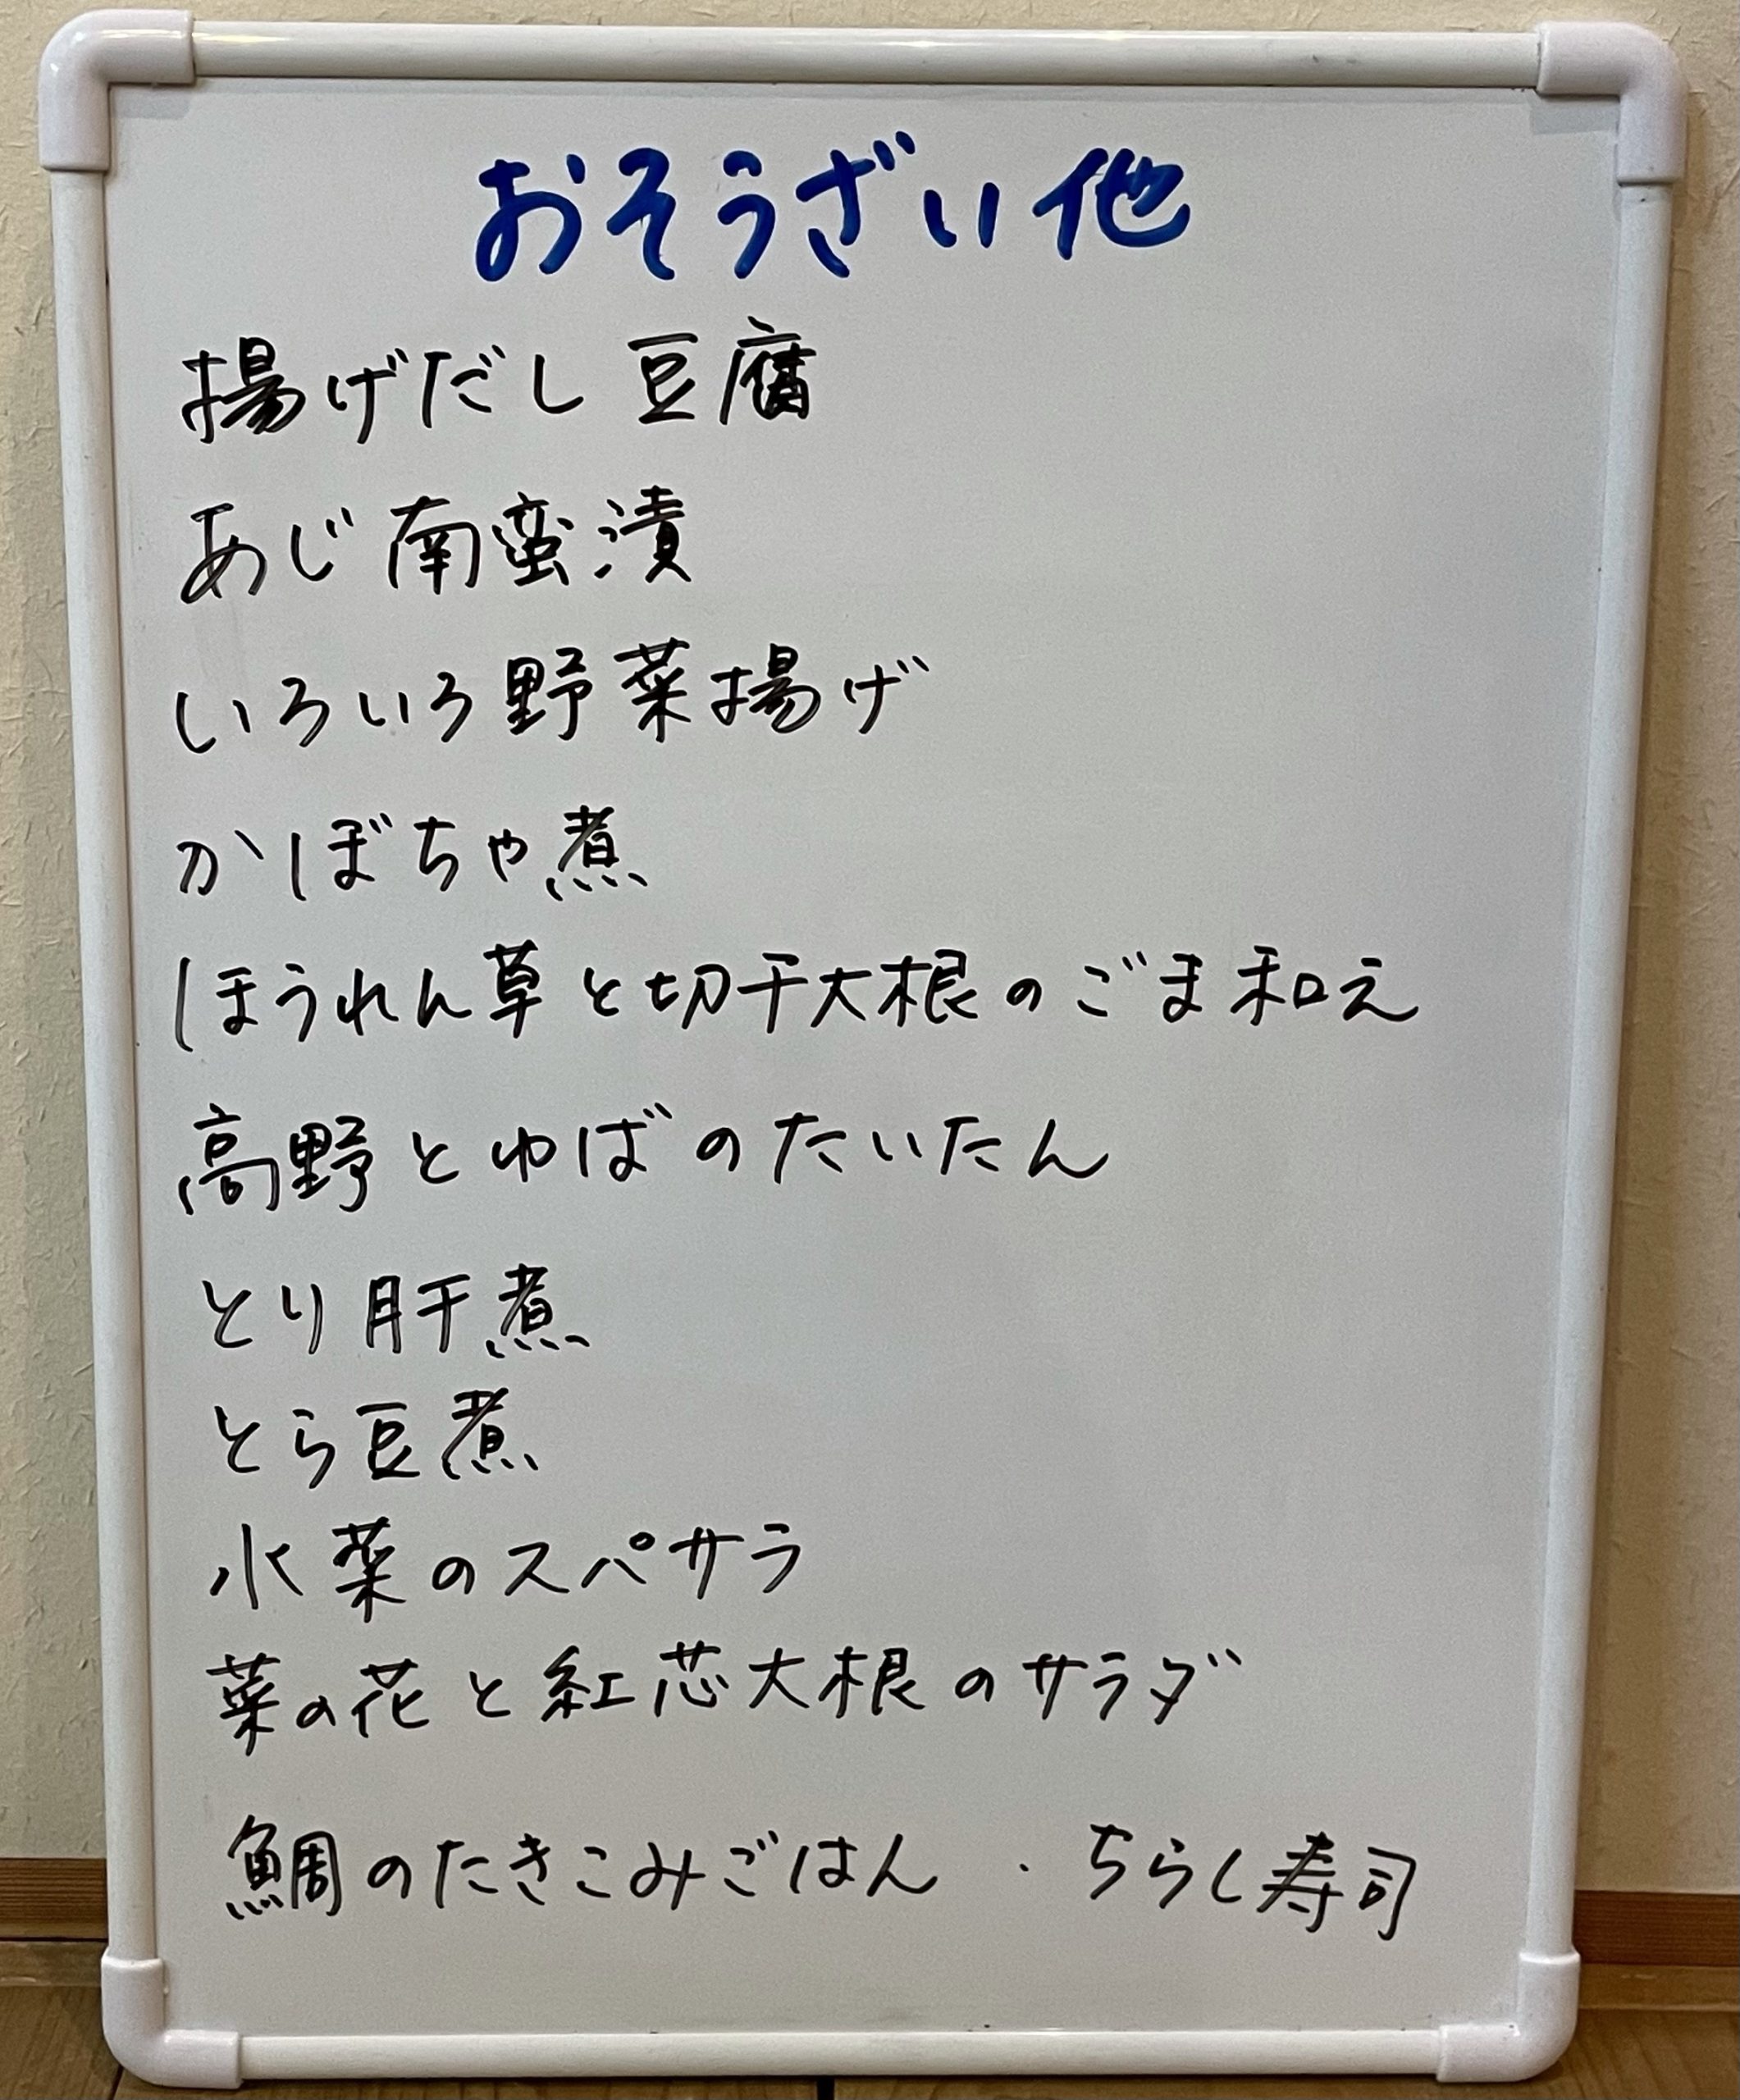 おそうざい他
揚げだし豆腐
あじ南蛮漬
いろいろ野菜揚げ
かぼちゃ煮
ほうれん草と切干大根のごま和え
高野とゆばのたいたん
とり肝煮
とら豆煮
水菜のスパサラ
菜の花と紅芯大根のサラダ
鯛のたきこみごはん ・ ちらし寿司